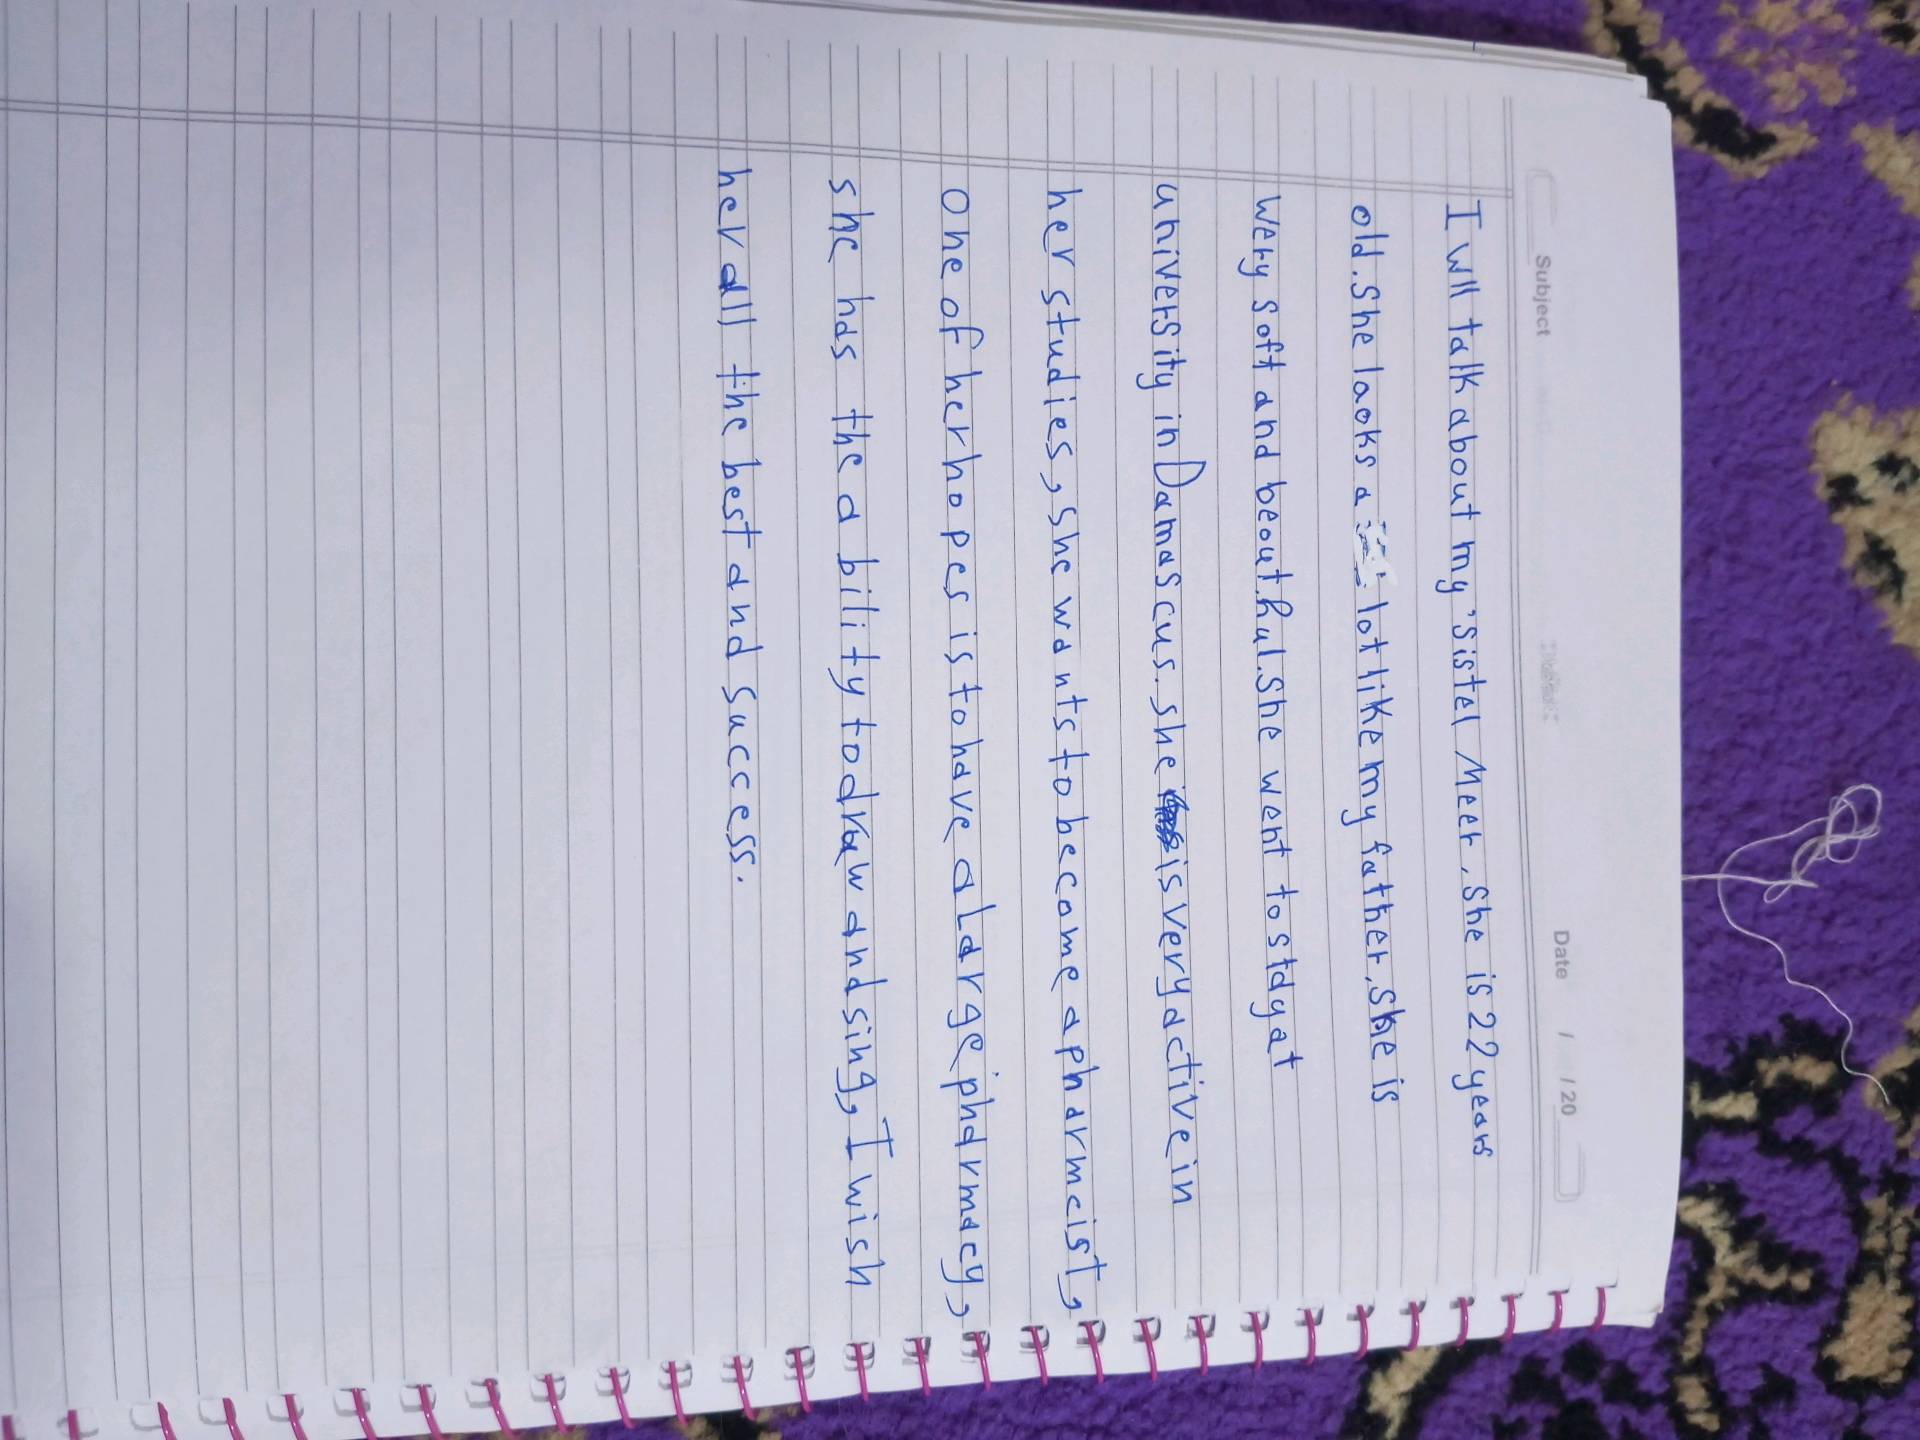 Subject
Date / / 20
I wll talk about my "sistel Meer. She is 22 years
old. She laoks a lot like my father. She is
wery soft and beouthul. She went to stdy at
university in Damascus. she is very active in
her studies, she wants to become a pharmcist,
One of her hopes is to have a Large pharmacy,
she has the ability to draw and sing, I wish
her all the best and success.